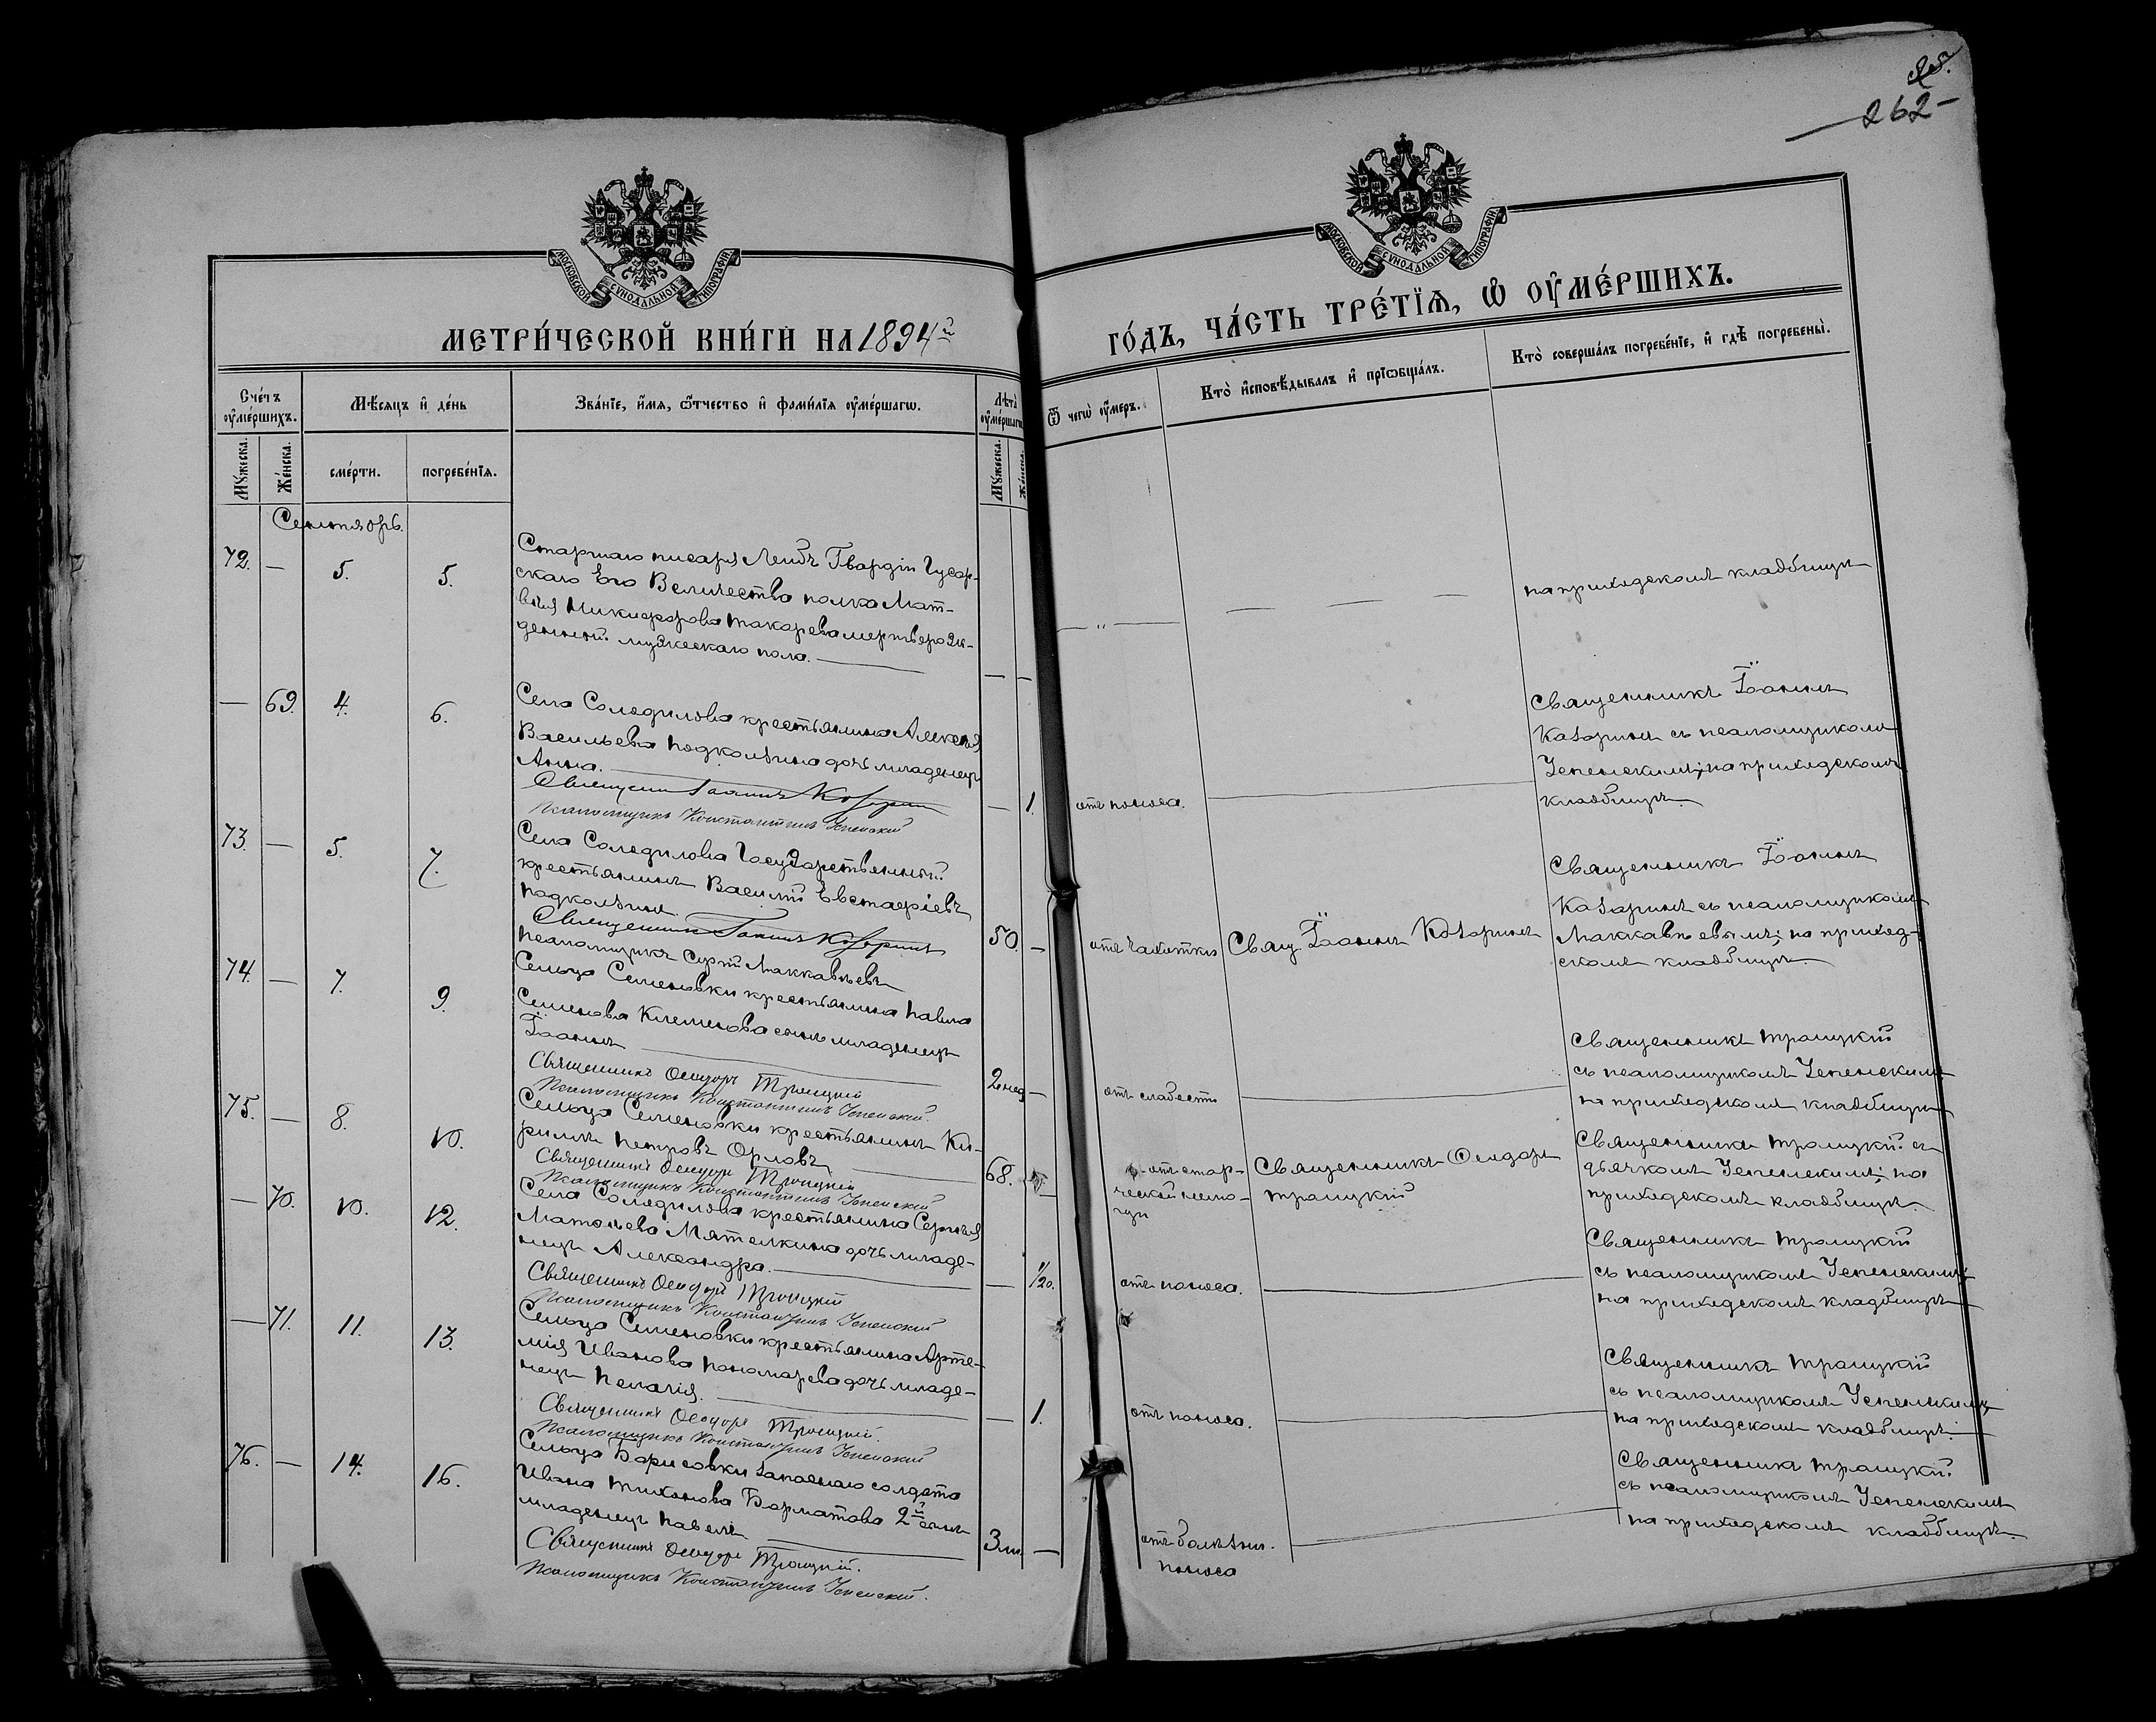 262
МОСКОВСКОЙ СУНОДАЛЬНОЙ ТИПОГРАФІИ
МОСКОВСКОЙ СУНОДАЛЬНОЙ ТИПОГРАФІИ
МЕТРИ́ЧЕСКОЙ КНИ́ГИ НА 1894 й
ГО́ДЪ, ЧА́СТЬ ТРЕ́ТЇѦ, Ѡ ОУ҆МЕ́РШИХЪ.
Сче́тъ оу҆ме́ршихъ.
Мѣ́сяцъ и҆ де́нь
Зва́нїе, и҆́мя, ѻ҆́тчество и҆ фами́лїя оу҆ме́ршагѡ.
Лѣта̀ оу҆ме́ршагѡ
Ѿ чегѡ̀ оу҆́меръ.
Кто̀ и҆сповѣ́дывалъ и҆ прїѡбща́лъ.
Кто̀ соверша́лъ погребе́нїе, и҆ гдѣ̀ погребены̀.
Мꙋ́жеска.
Же́нска.
сме́рти.
погребе́нїя.
Мꙋ́жеска.
Же́нска.
Сентябрь.
72. — 5. 5.
Старшаго писаря Лейбъ Гвардіи Гусар-
скаго Его Величества полка Мат-
вѣя Никифорова Токарева мертворож-
денный мужескаго пола. —
— —
— " —
— — —
на приходскомъ кладбищѣ
— 69. 4. 6.
Села Солодилова крестьянина Алексѣя
Васильева Подколзина дочь младенецъ
Анна. —
Священникъ Іоаннъ Козаринъ
Псаломщикъ Константинъ Успенскій
— 1.
отъ поноса.
Священникъ Іоаннъ
Казаринъ съ псаломщикомъ
Успенскимъ; на приходскомъ
кладбищѣ.
73. — 5. 7.
Села Солодилова Государственный
крестьянинъ Василій Евстафіевъ
Подколзинъ.
Священникъ Іоаннъ Козаринъ
Псаломщикъ Сергій Маккавѣевъ
50. —
отъ чахотки
Свящ. Іоаннъ Казаринъ
Священникъ Іоаннъ
Казаринъ съ псаломщикомъ
Маккавѣевымъ; на приход-
скомъ кладбищѣ.
74. — 7. 9.
Сельца Семеновки крестьянина Павла
Семенова Клеменова сынъ младенецъ
Іоаннъ —
Священникъ Ѳеодоръ Троицкій
Псаломщикъ Константинъ Успенскій.
2 нед —
отъ слабости
Священникъ Троицкій
съ псаломщикомъ Успенскимъ
на приходскомъ кладбищѣ
75. — 8. 10.
Сельца Семеновки крестьянинъ Ки-
риллъ Петровъ Орловъ —
Священникъ Ѳеодоръ Троицкій
Псаломщикъ Константинъ Успенскій
68. —
отъ стар-
ческой немо-
щи
Священникъ Ѳеодоръ
Троицкій
Священникъ Троицкій съ
дьячкомъ Успенскимъ; на
приходскомъ кладбищѣ.
— 70. 10. 12.
Села Солодилова крестьянина Сергѣя
Матвѣева Мятелкина дочь младе-
нецъ Александра. —
Священникъ Ѳеодоръ Троицкій
Псаломщикъ Константинъ Успенскій
—
отъ поноса.
Священникъ Троицкій
съ псаломщикомъ Успенскимъ;
на приходскомъ кладбищѣ
— 71. 11. 13.
Сельца Семеновки крестьянина Арте-
мія Иванова Пономарева дочь младе-
нецъ Пелагія. —
Священникъ Ѳеодоръ Троицкій.
Псаломщикъ Константинъ Успенскій
— 1.
отъ поноса.
Священникъ Троицкій
съ псаломщикомъ Успенскимъ
на приходскомъ кладбищѣ.
76. — 14. 16.
Сельца Борисовки запаснаго солдата
Ивана Тихонова Борматова 2й сынъ
младенецъ Павелъ —
Священникъ Ѳеодоръ Троицкій.
Псаломщикъ Константинъ Успенскій.
3 м. —
отъ болѣзни.
поноса
Священникъ Троицкій
съ псаломщикомъ Успенскимъ
на приходскомъ кладбищѣ.